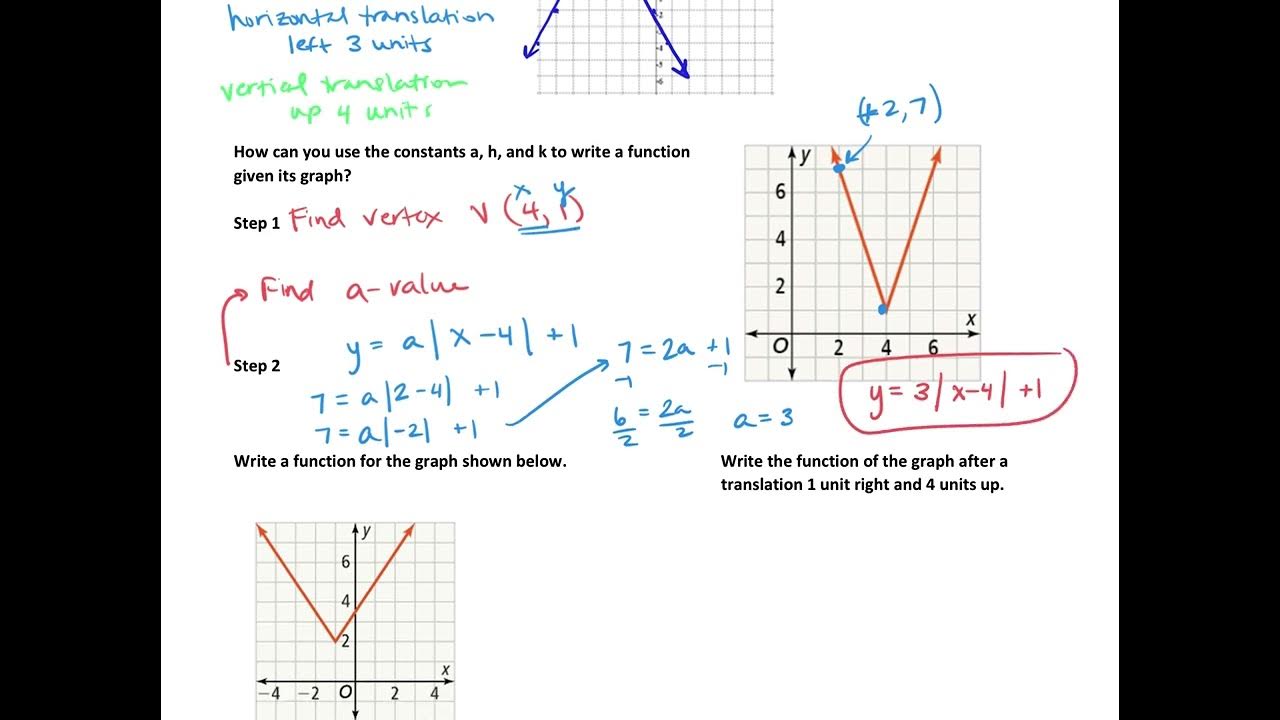 horizontal translation
left 3 units
vertical translation
up 4 units
(2,7)
How can you use the constants a, h, and k to write a function
given its graph?
Step 1 Find vertex V (4,1)
x y
Find a-value
Step 2
y = a|x-4| +1
7 = a|2-4| +1
7 = a|-2| +1
7 = 2a +1
-1 -1
6/2 = 2a/2 a = 3
y
6
4
2
O 2 4 6
x
y = 3|x-4| +1
Write a function for the graph shown below.
Write the function of the graph after a
translation 1 unit right and 4 units up.
y
6
4
2
x
-4 -2 O 2 4